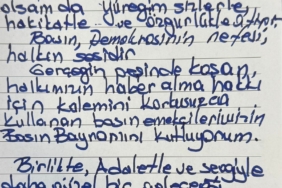 olsam da yüreğim sizlerle,
hakikatle ve özgürlükle atıyor.
Basın, Demokrasinin nefesi,
halkın sesidir
Gerçeğin peşinde koşan,
halkımızın haber alma hakkı
için kalemini korkusuzca
kullanan basın emekçilerimizin
Basın Bayramını kutluyorum.
Birlikte, Adaletle ve sevgiyle
daha güzel bir geleceği